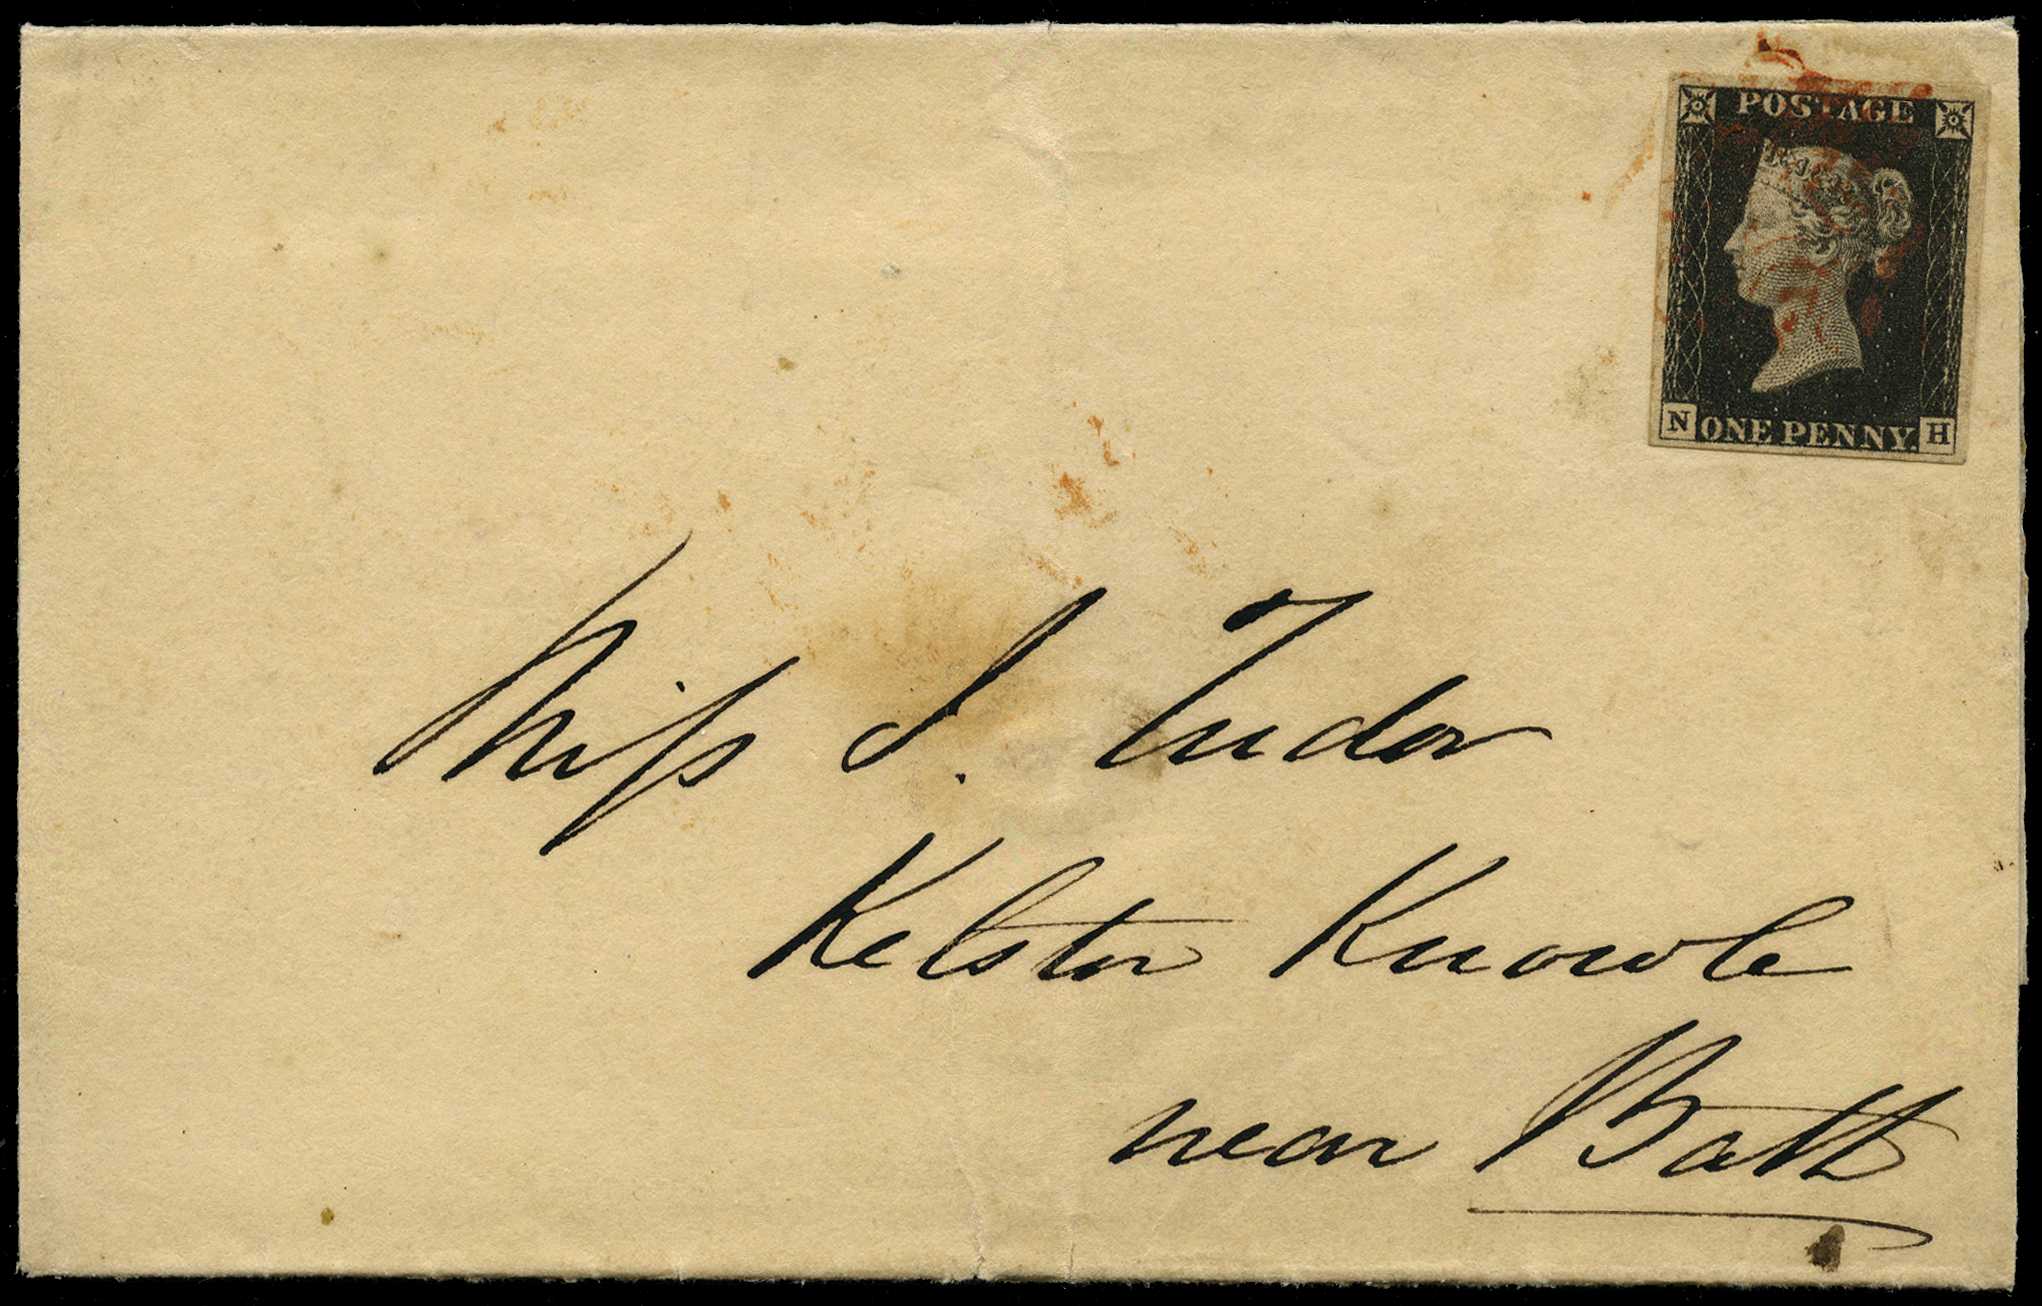 POSTAGE
N ONE PENNY. H
Miſs S. Tudor
Kelston Knowle
near Bath